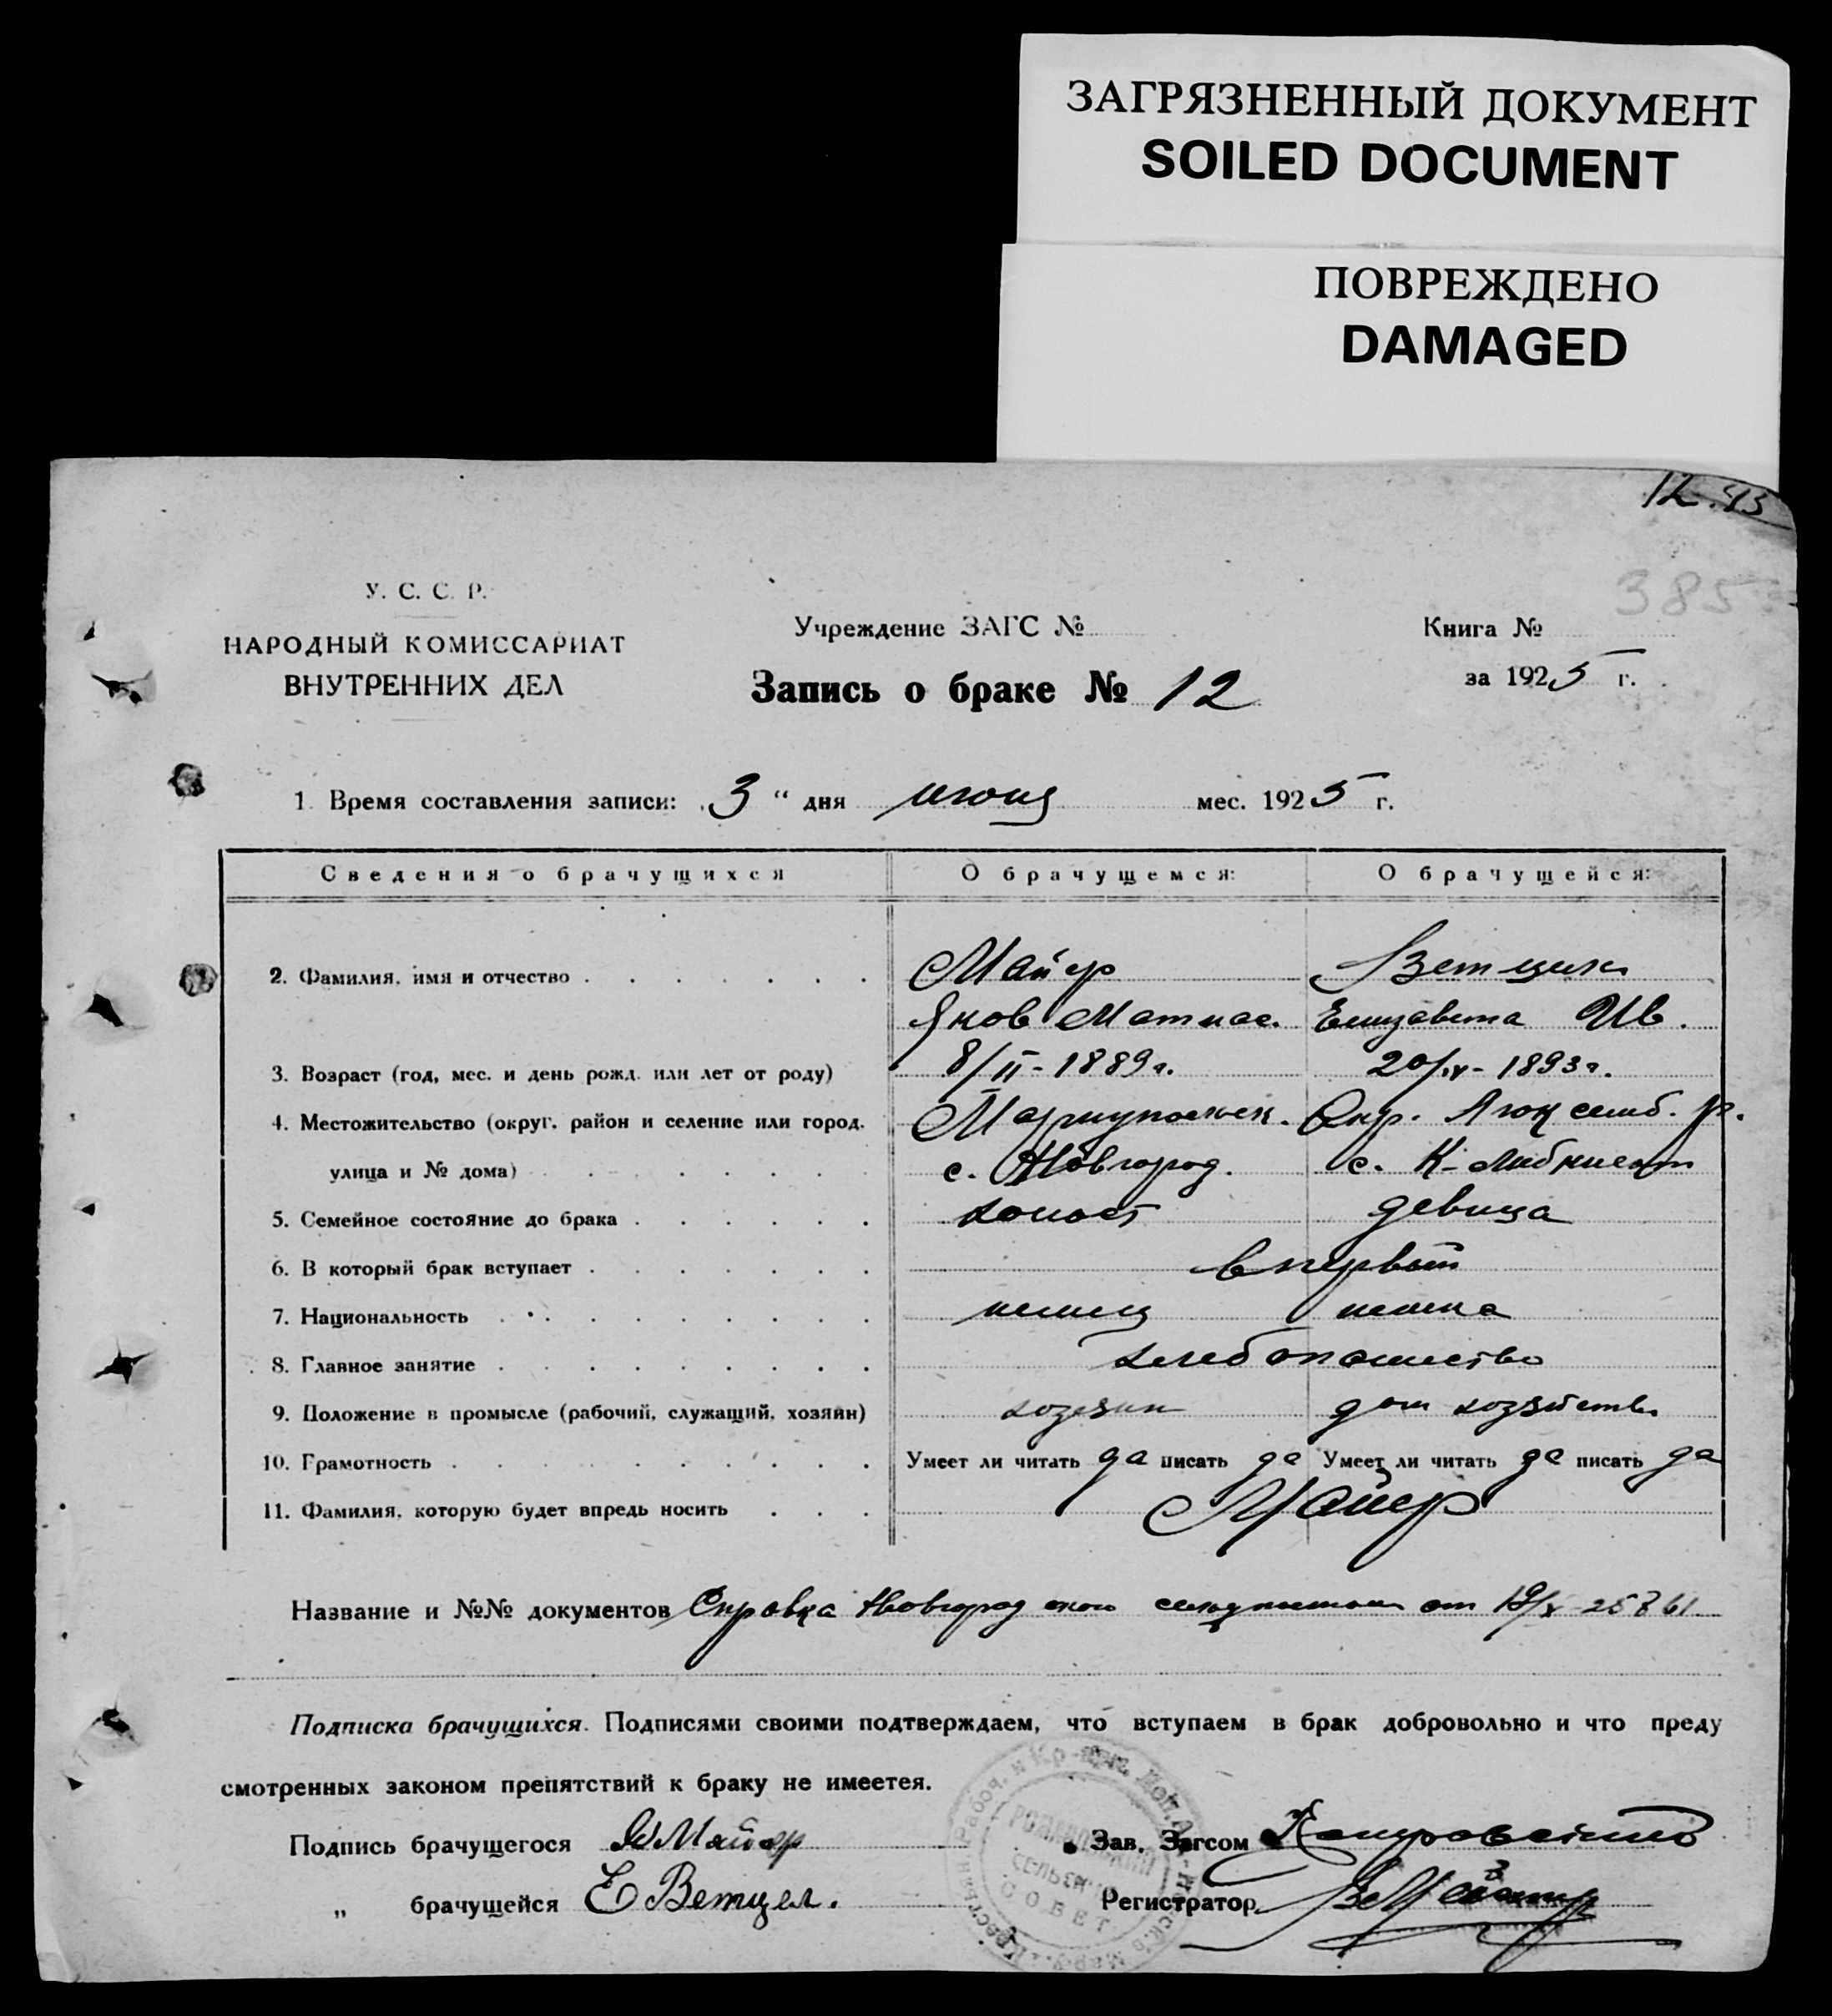 ЗАГРЯЗНЕННЫЙ ДОКУМЕНТ
SOILED DOCUMENT
ПОВРЕЖДЕНО
DAMAGED
12.
385
У. С. С. Р.
НАРОДНЫЙ КОМИССАРИАТ
ВНУТРЕННИХ ДЕЛ
Учреждение ЗАГС №
Запись о браке № 12
Книга №
за 1925 г.
1. Время составления записи: „3“ дня июня мес. 1925 г.
Сведения о брачущихся О брачущемся: О брачущейся:
2. Фамилия, имя и отчество Майер
Яков Матиас. Елизавета Ив.
3. Возраст (год, мес. и день рожд. или лет от роду) 8/II-1889г. 20/IV-1893г.
4. Местожительство (округ, район и селение или город, Мариупольск. Окр. Люксемб. р.
улица и № дома) с. Новгород. с. К-Либкнехт
5. Семейное состояние до брака холост девица
6. В который брак вступает в первый
7. Национальность немец немка
8. Главное занятие хлебопашество
9. Положение в промысле (рабочий, служащий, хозяин) хозяин дом хозяйство
10. Грамотность Умеет ли читать да писать да Умеет ли читать да писать да
11. Фамилия, которую будет впредь носить Майер
Название и №№ документов Справка Новгородского от
Подписка брачущихся. Подписями своими подтверждаем, что вступаем в брак добровольно и что преду
смотренных законом препятствий к браку не имеется.
Подпись брачущегося Я Майер
„ брачущейся Е Ветцел.
Зав. Загсом
Регистратор
СЕЛЬСК
СОВЕТ